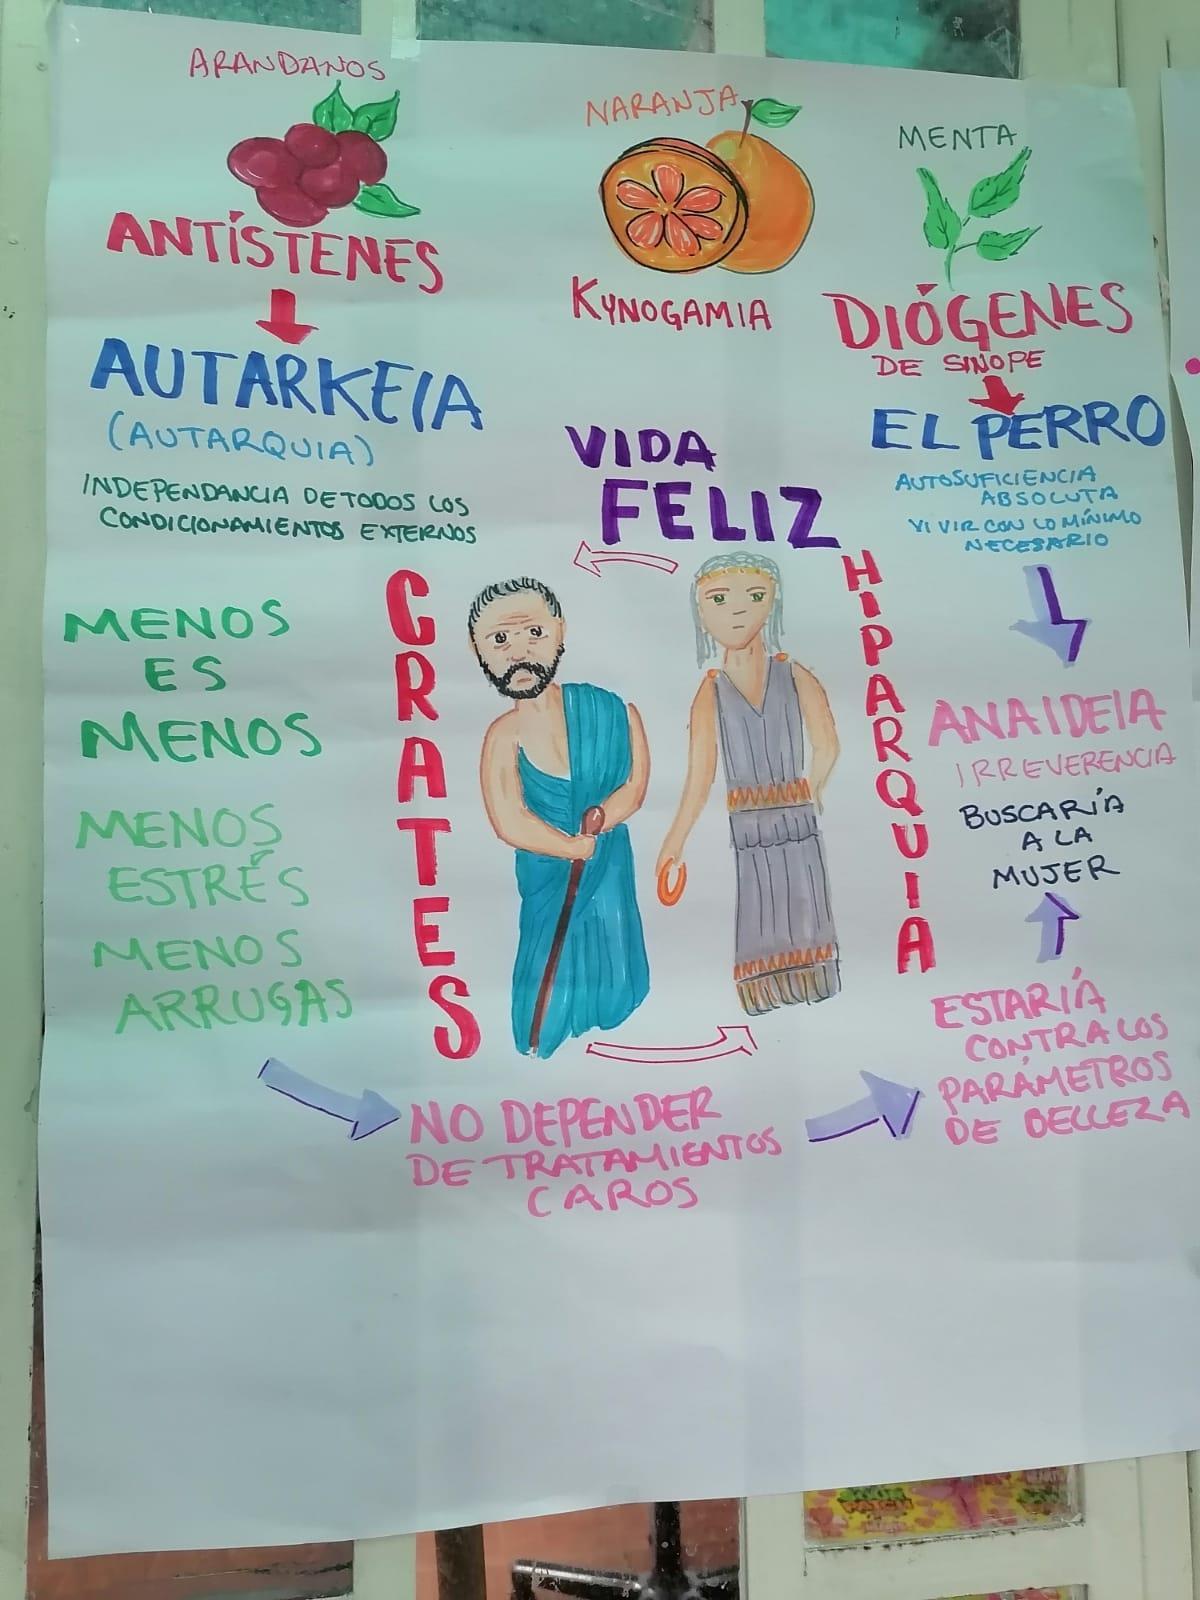 ARANDANOS
ANTÍSTENES
AUTARKEIA
(AUTARQUIA)
INDEPENDANCIA DE TODOS LOS
CONDICIONAMIENTOS EXTERNOS
MENOS
ES
MENOS
MENOS
ESTRÉS
MENOS
ARRUGAS
NARANJA
KYNOGAMIA
VIDA
FELIZ
CRATES
HIPARQUIA
NO DEPENDER
DE TRATAMIENTOS
CAROS
MENTA
DIÓGENES
DE SINOPE
EL PERRO
AUTOSUFICIENCIA
ABSOLUTA
VIVIR CON LO MÍNIMO
NECESARIO
ANAIDEIA
IRREVERENCIA
BUSCARÍA
A LA
MUJER
ESTARÍA
CONTRA LOS
PARÁMETROS
DE BELLEZA